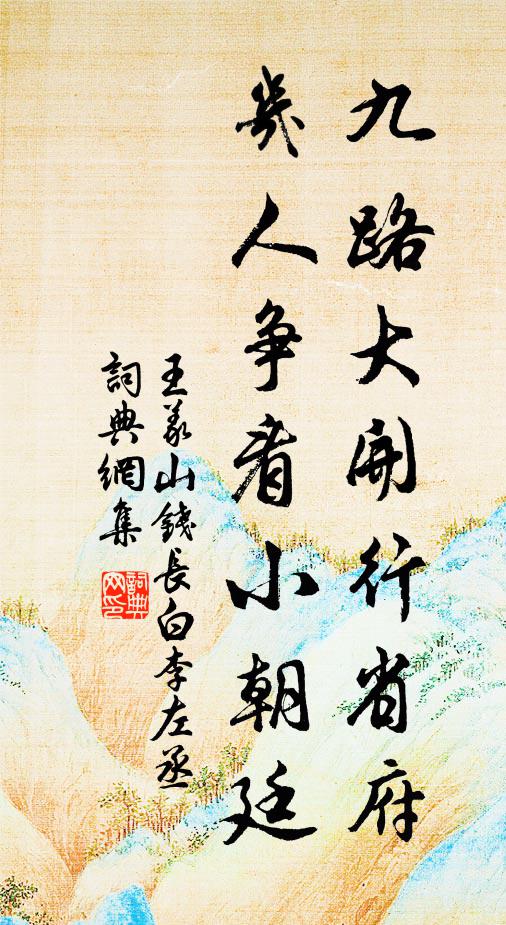 九路大開行省府
幾人争看小朝廷
王義山錢長白李左丞
詞典網集
詞典网印